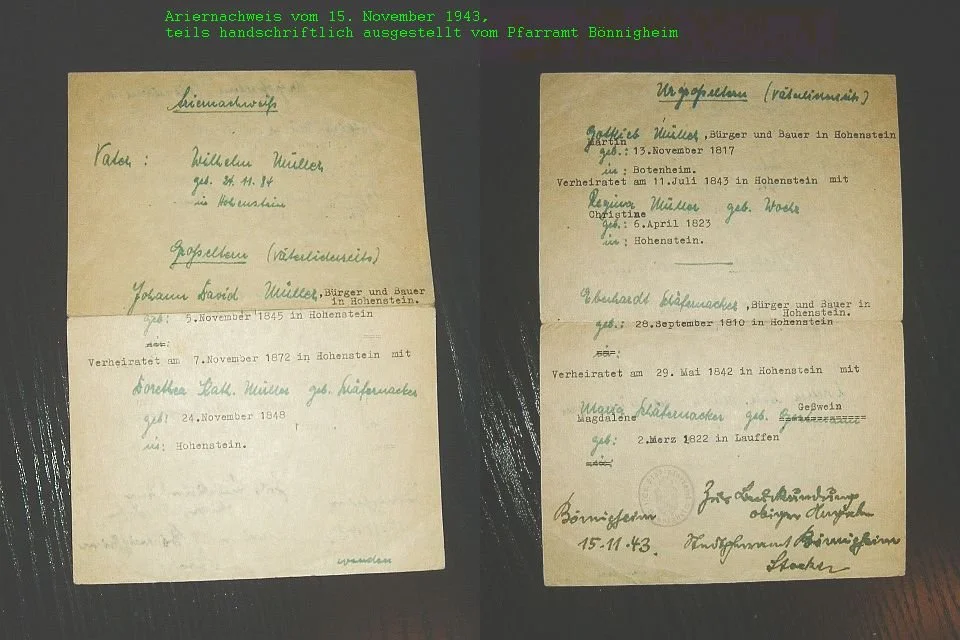 Ariernachweis vom 15. November 1943,
teils handschriftlich ausgestellt vom Pfarramt Bönnigheim
Ariernachweiß
Vater : Wilhelm Müller
geb. 24.11.84
in Hohenstein
Großeltern (väterlicherseits)
Johann David Müller, Bürger und Bauer
in Hohenstein.
geb: 5.November 1845 in Hohenstein
Verheiratet am 7.November 1872 in Hohenstein mit
Dorothea Kath. Müller geb. Schäfernacker
geb: 24.November 1848
in: Hohenstein.
wenden
Urgroßeltern (väterlicherseits)
Gottlieb Müller ,Bürger und Bauer in Hohenstein
Martin
geb.: 13.November 1817
in : Botenheim.
Verheiratet am 11.Juli 1843 in Hohenstein mit
Regina Müller geb.
Christine
geb.: 6.April 1823
in : Hohenstein.
Eberhardt Schäfernacker ,Bürger und Bauer in
Hohenstein.
geb.: 28.September 1810 in Hohenstein
Verheiratet am 29. Mai 1842 in Hohenstein mit
Geßwein
Maria Schäfernacker geb.
Magdalene
geb: 2.Merz 1822 in Lauffen
Zur Beurkundung
obiger Angaben
Bönnigheim
15.11.43. Stadtpfarramt Bönnigheim